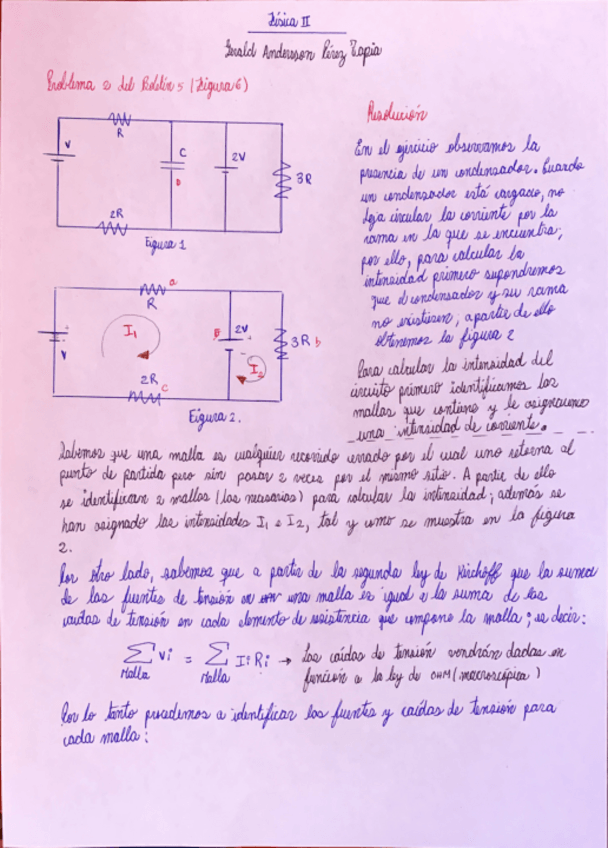 Física II
Gerald Andersson Pérez Tapia
Problema 2 del Boletín 5 (Figura 6)
V
R
C
D
2V
3R
2R
Figura 1
Resolución
En el ejercicio observamos la
presencia de un condensador. Cuando
un condensador está cargado, no
deja circular la corriente por la
rama en la que se encuentra;
por ello, para calcular la
intensidad primero supondremos
que el condensador y su rama
no existiesen; a partir de ello
obtenemos la figura 2
a
R
I1
V
2V
3R b
I2
2R c
Figura 2.
Para calcular la intensidad del
circuito primero identificamos las
mallas que contiene y le asignamos
una intensidad de corriente.
Sabemos que una malla es cualquier recorrido cerrado por el cual uno retorna al
punto de partida pero sin pasar 2 veces por el mismo sitio. A partir de ello
se identifican 2 mallas (las necesarias) para calcular la intensidad; además se
han asignado las intensidades I1 e I2, tal y como se muestra en la figura
2.
Por otro lado, sabemos que a partir de la segunda ley de Kirchoff que la suma
de las fuentes de tensión en una malla es igual a la suma de las
caídas de tensión en cada elemento de resistencia que compone la malla; es decir:
∑ Vi = ∑ Ii Ri → Las caídas de tensión vendrán dadas en
Malla Malla función a la ley de OHM (macroscópica)
Por lo tanto procedemos a identificar las fuentes y caídas de tensión para
cada malla: